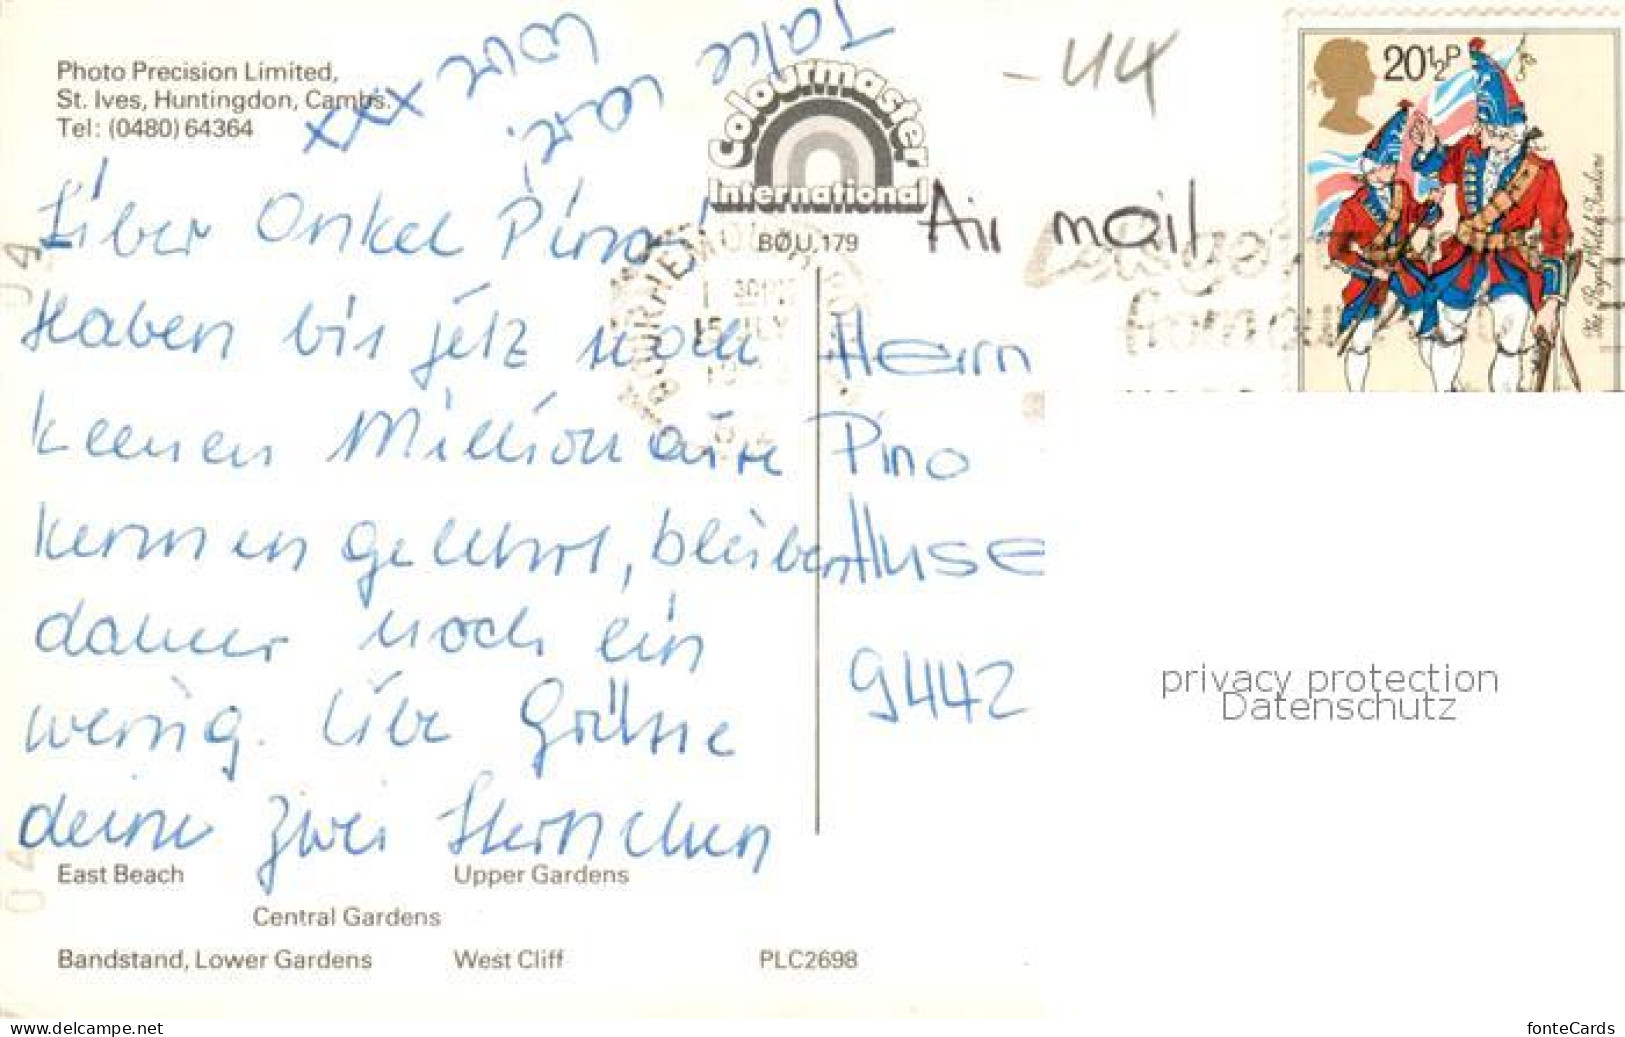 Photo Precision Limited,
St. Ives, Huntingdon, Cambs.
Tel: (0480) 64364
Take
care.
Love
xxx
Colourmaster
International
BØU.179
- 44
Air mail
20½P
The Royal Welch Fusiliers
BOURNEMOUTH
Lieber Onkel Pino!
Haben bis jetz noch
keenen Millionaire
kennen gelehrt, bleiben
daher noch ein
wenig. Liebe Grüsse
deine zwei Sternchen
Herrn
Pino
Huse
9442
privacy protection
Datenschutz
East Beach
Upper Gardens
Central Gardens
Bandstand, Lower Gardens
West Cliff
PLC2698
www.delcampe.net
fonteCards